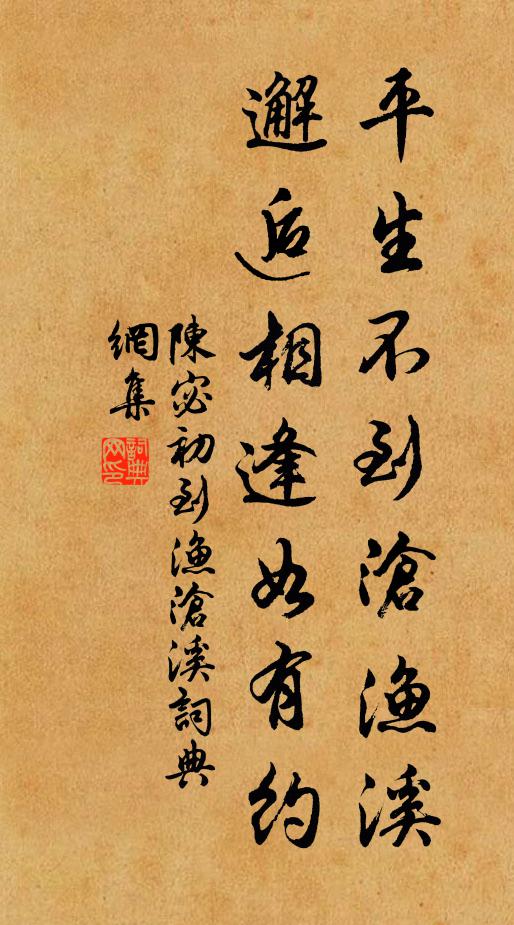 平生不到滄漁溪
邂逅相逢如有約
陳宓初到漁滄溪詞典
網集
詞典網印